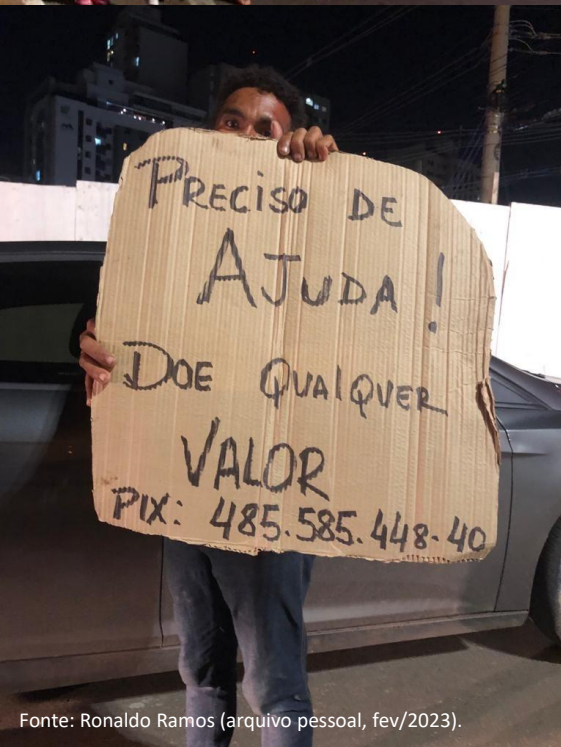 PRECISO DE
AJUDA!
DOE QUALQUER
VALOR
PIX: 485.585.448-40
Fonte: Ronaldo Ramos (arquivo pessoal, fev/2023).